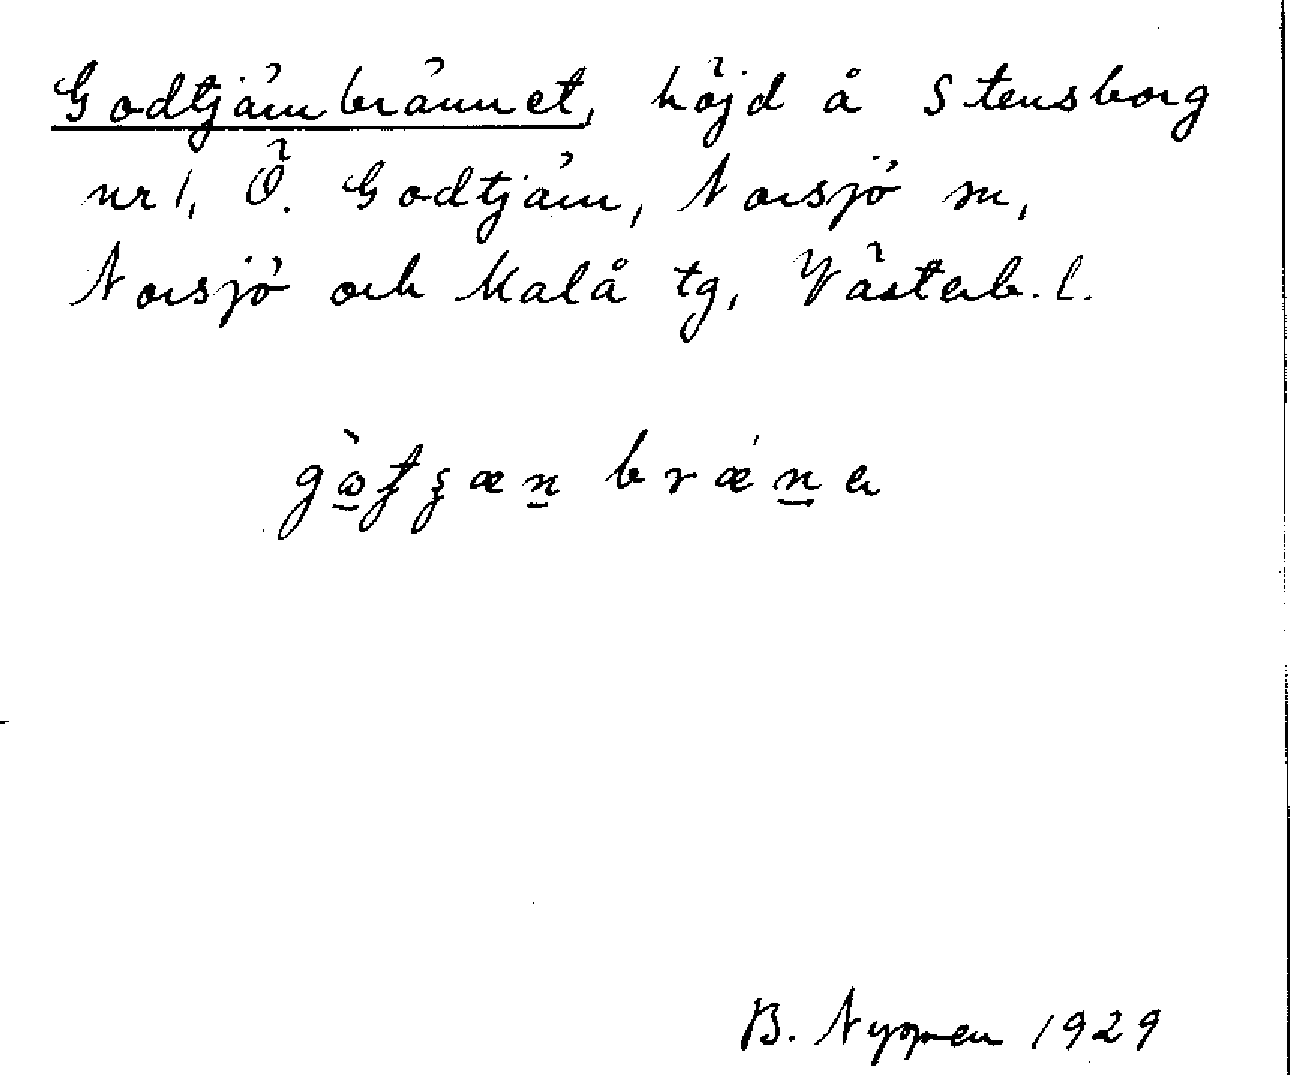 Godtjärnbrännet, höjd å Stensborg
nr 1, Ö. Godtjärn, Norsjö sn,
Norsjö och Malå tg, Västerb. l.
B. Nyman 1929